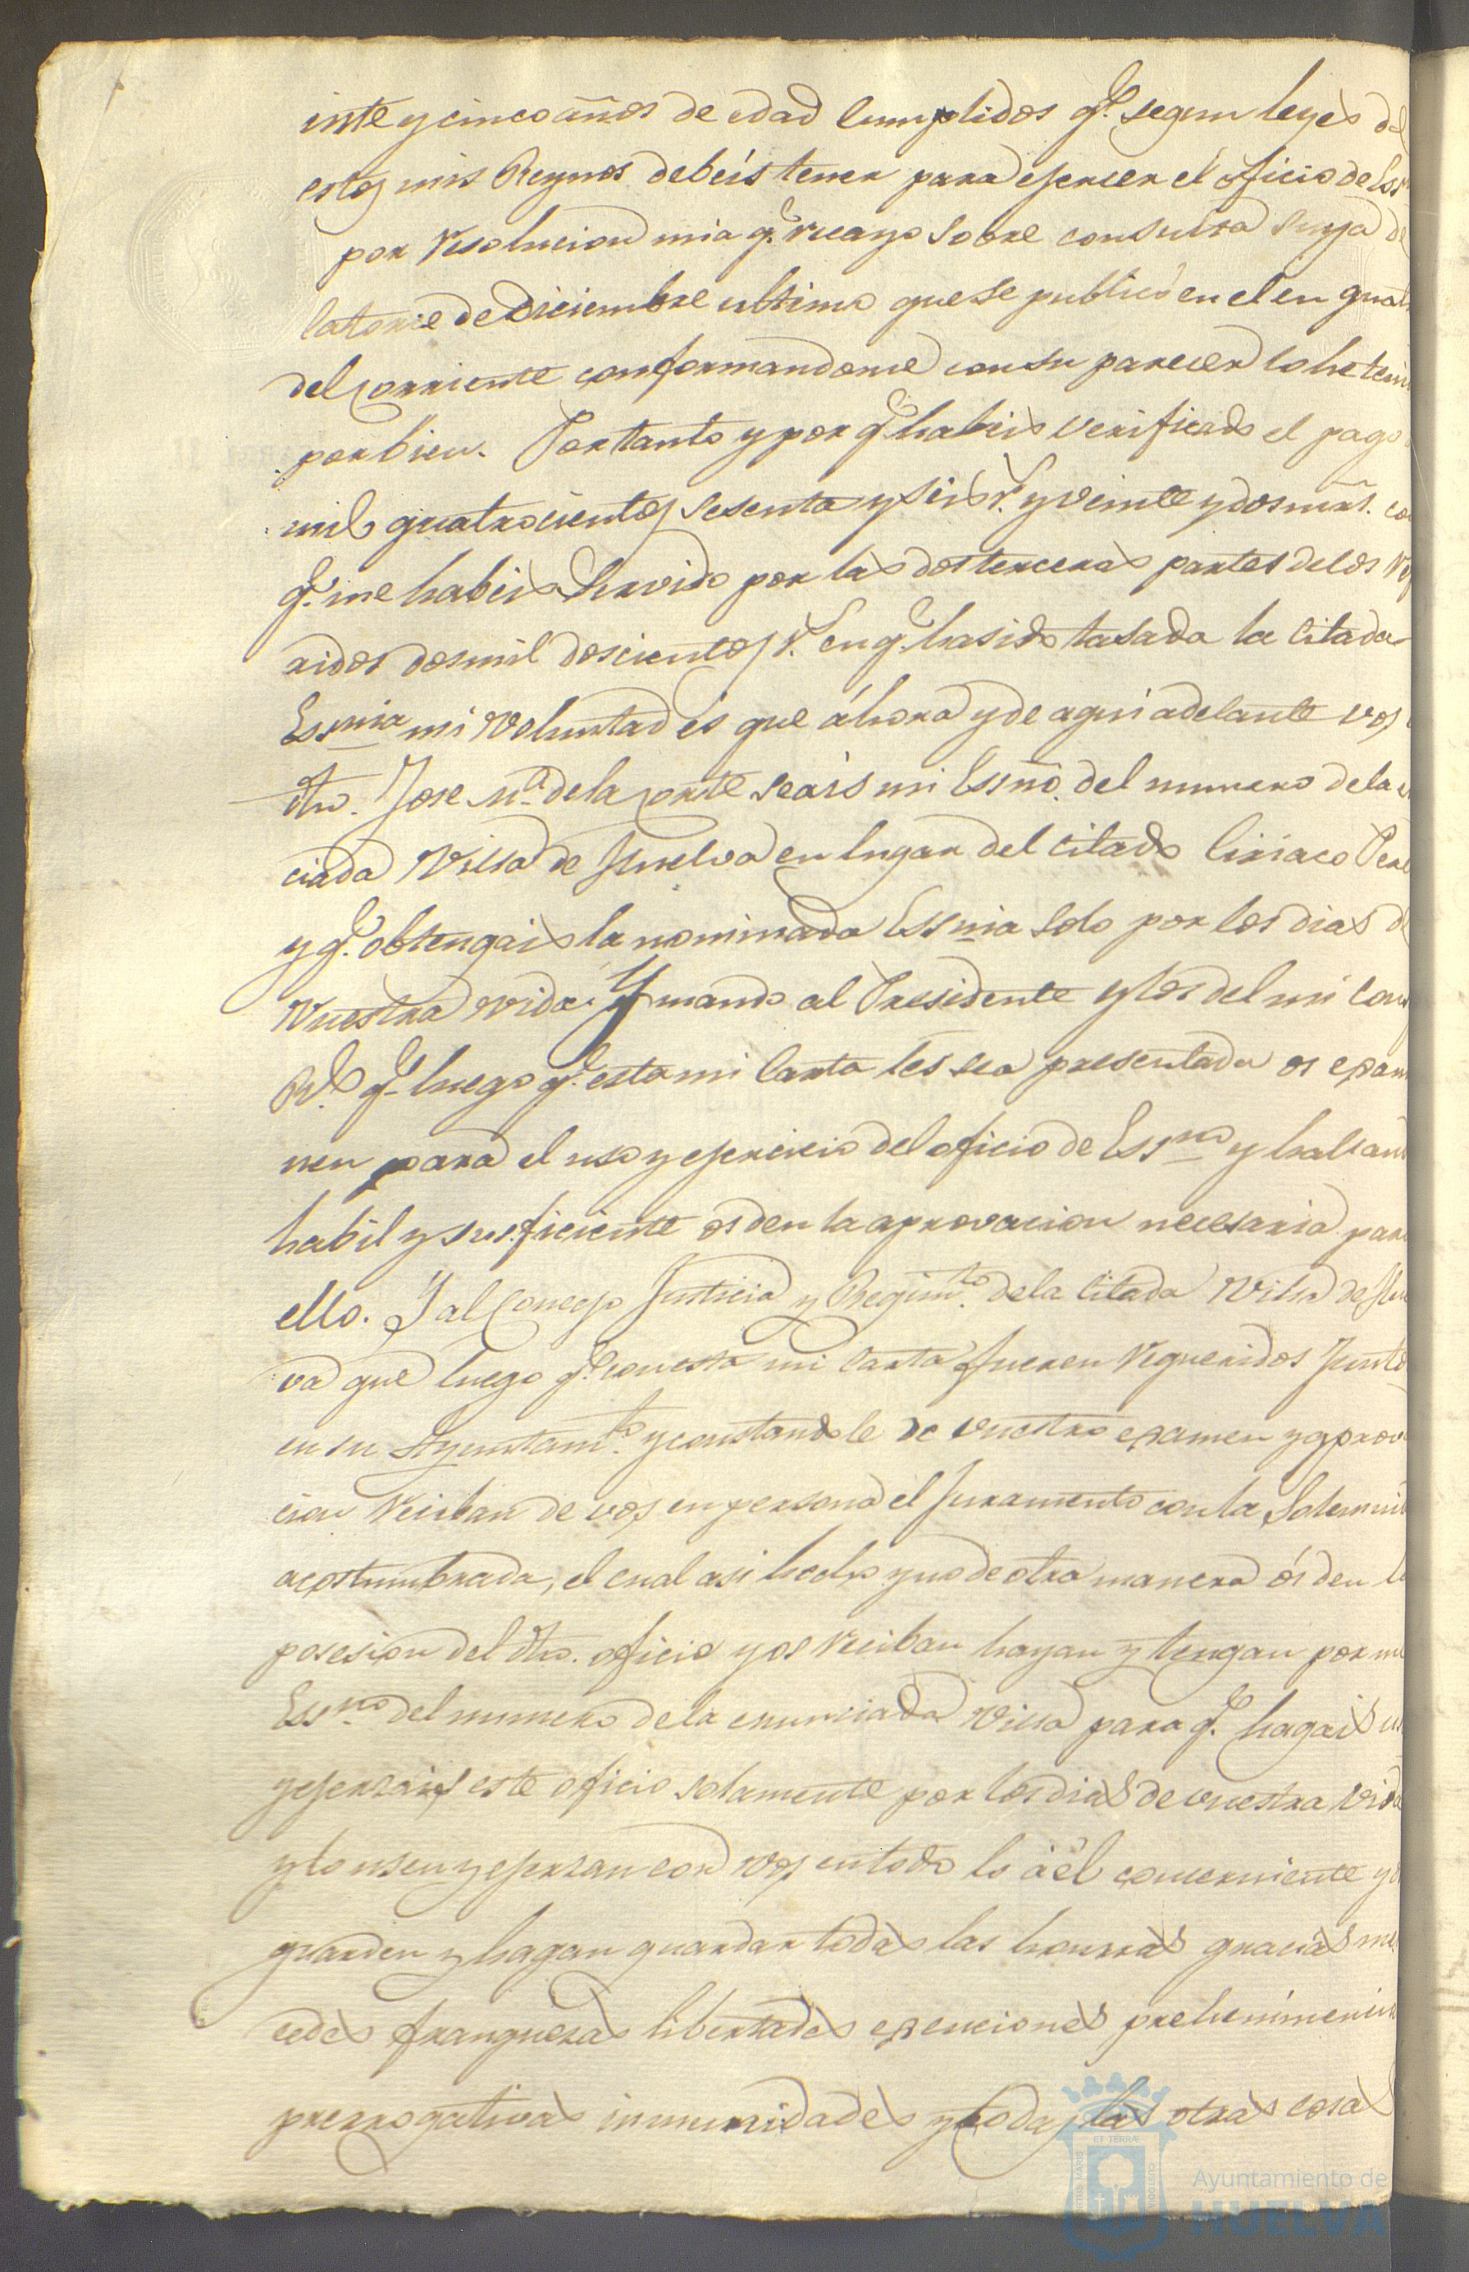 inte y cinco años de edad cumplidos q.e segun leyes de
estos mis Reynos debeis tener para ejercer el oficio de Ess
por resolucion mia q.e recayo sobre consulta suya de
catorce de Diciembre ultimo que se publicó en el en quat
del corriente conformandome con su parecer lo he teni
por bien. Por tanto y por q.e habeis verificado el pago
mil quatrocientos sesenta y seis r.s y veinte y dos mrs. co
q.e me habeis servido por las dos terceras partes de los
ridos dosmil doscientos r.s en q.e ha sido tasada la citada
Essnia mi voluntad es que áhora y de aqui adelante vos
dho. Jose M.a de la Corte seais mi Essno. del numero de la
ciada Villa de Huelva en lugar del citado Ciriaco Per
y q.e obtengais la nominada Essnia solo por los dias de
vuestra vida. Y mando al Presidente y los del mi Cons
R.l q.e luego q.e esta mi Carta les sea presentada os exam
nen para el uso y ejercicio del oficio de Ess.no y halland
habil y suficiente os den la aprovacion necesaria para
ello. Y al Concejo Justicia y Regim.to de la citada Villa de Hu
va que luego q.e con esta mi carta fueren requeridos Junto
en su Ayuntam.to y constandole de vuestro examen y aprov
cion reciban de vos en persona el Juramento con la Solemni
acostumbrada, el cual asi hecho y no de otra manera ós den l
posesion del dho. oficio y os reciban hayan y tengan por mi
Ess.no del numero de la enunciada Villa para q.e hagais us
y ejerzais este oficio solamente por los dias de vuestra vida
y lo usen y ejerzan con vos en todo lo á él concerniente y
guarden y hagan guardar todas las honrras gracias me
cedes franquezas libertades exenciones preheminencia
prerrogativas inmunidades y todas las otras cosas
MARIS ET TERRÆ CUSTODIA
Ayuntamiento de
HUELVA